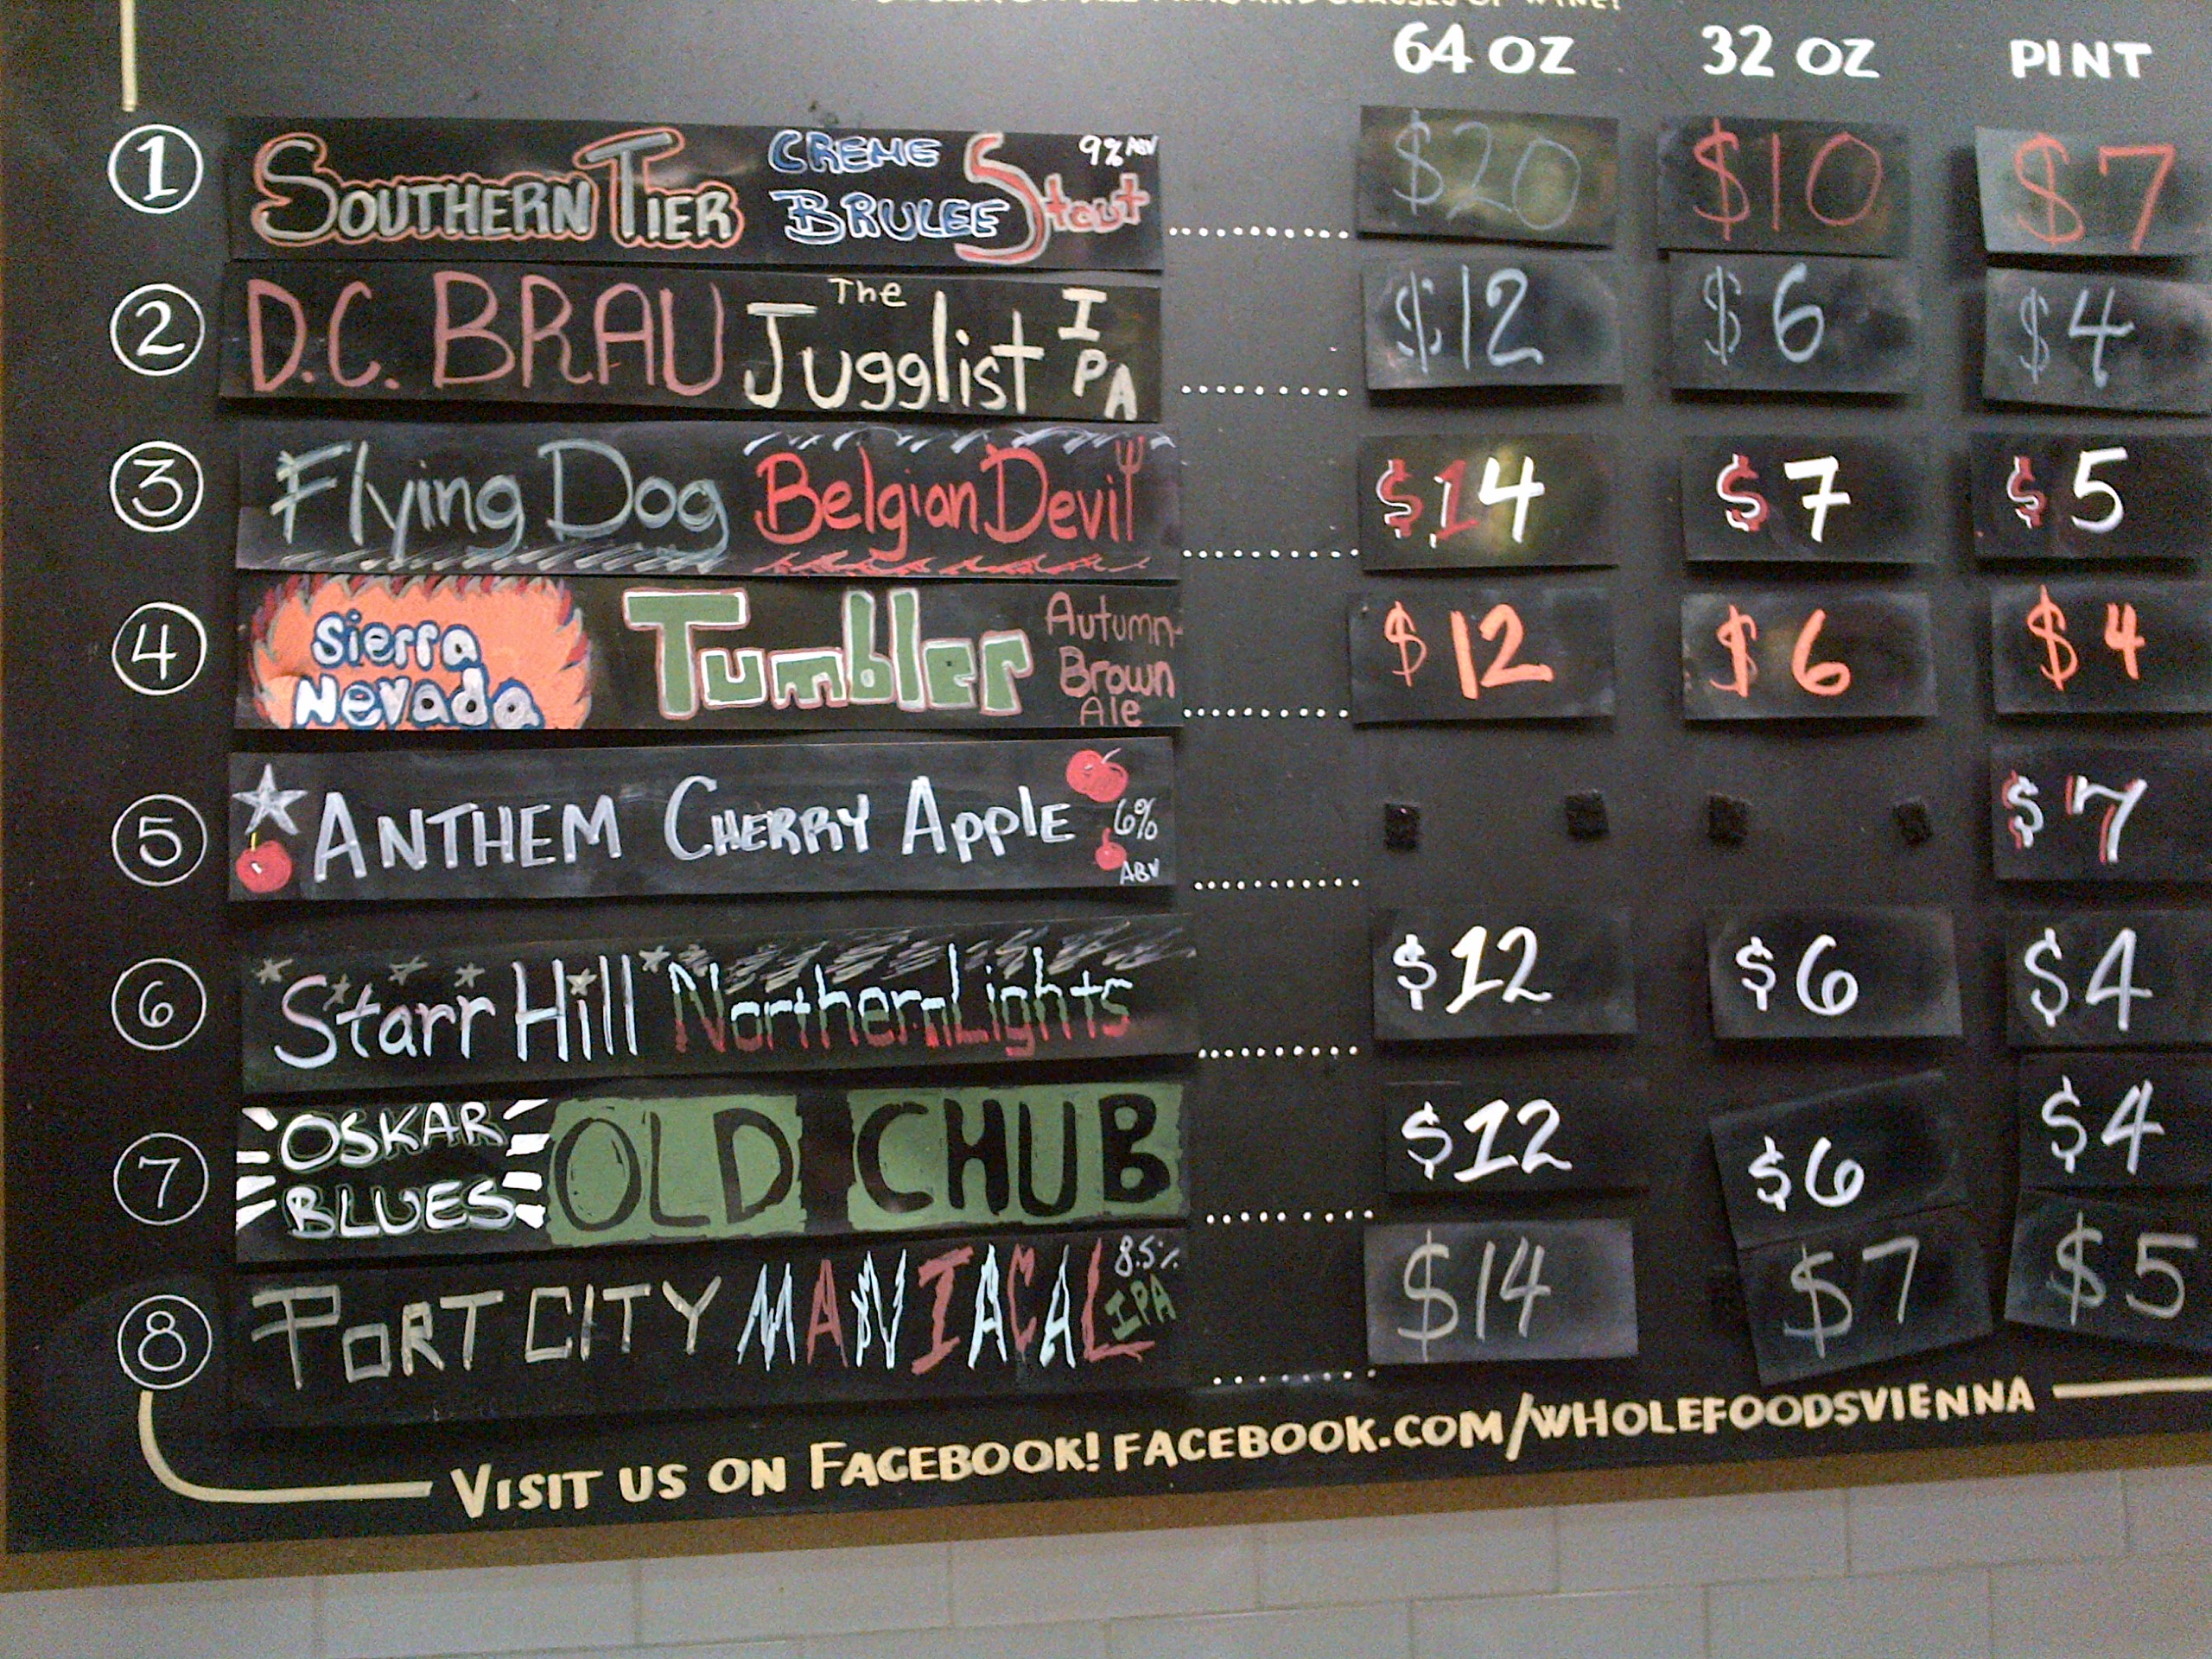 GLASSES OF WINE!
64 OZ 32 OZ PINT
1 SOUTHERN TIER CREME BRULEE Stout 9% ABV .......... $20 $10 $7
2 D.C. BRAU The Jugglist IPA .......... $12 $6 $4
3 Flying Dog Belgian Devil .......... $14 $7 $5
4 Sierra Nevada Tumbler Autumn Brown Ale .......... $12 $6 $4
5 ANTHEM CHERRY APPlE 6% ABV .......... $7
6 Starr Hill Northern Lights .......... $12 $6 $4
7 OSKAR BLUES OLD CHUB .......... $12 $6 $4
8 PORT CITY MANIACAL 8.5% IPA .......... $14 $7 $5
VISIT US ON FACEBOOK! FACEBOOK.COM/WHOLEFOODSVIENNA